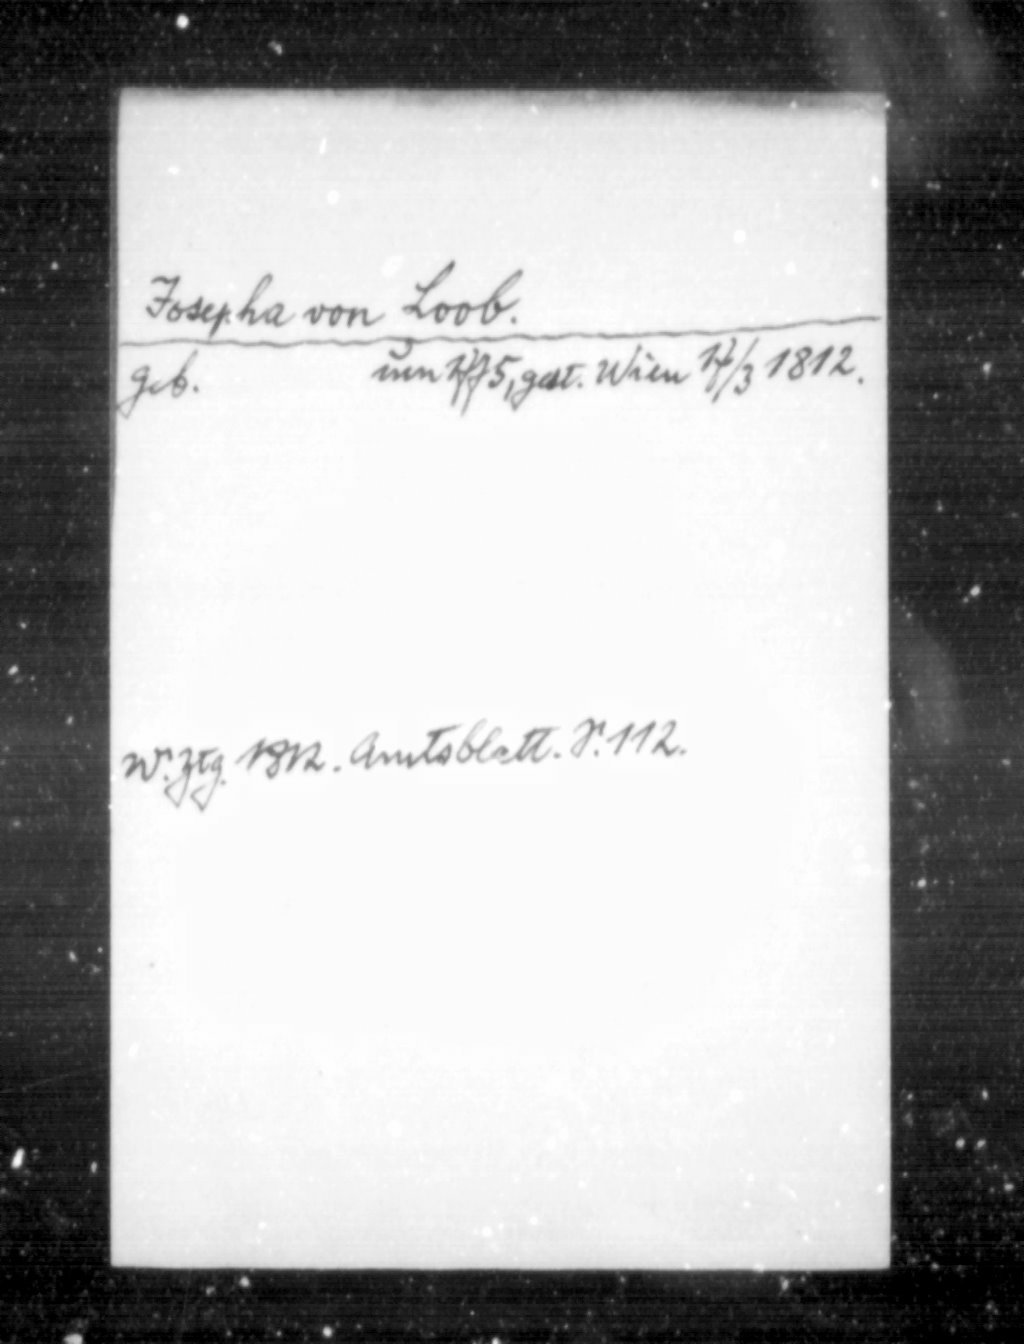 Josepha von Loob.
geb. um 1775, gest. Wien 17/3 1812.
W. Ztg. 1812. Amtsblatt. S. 112.